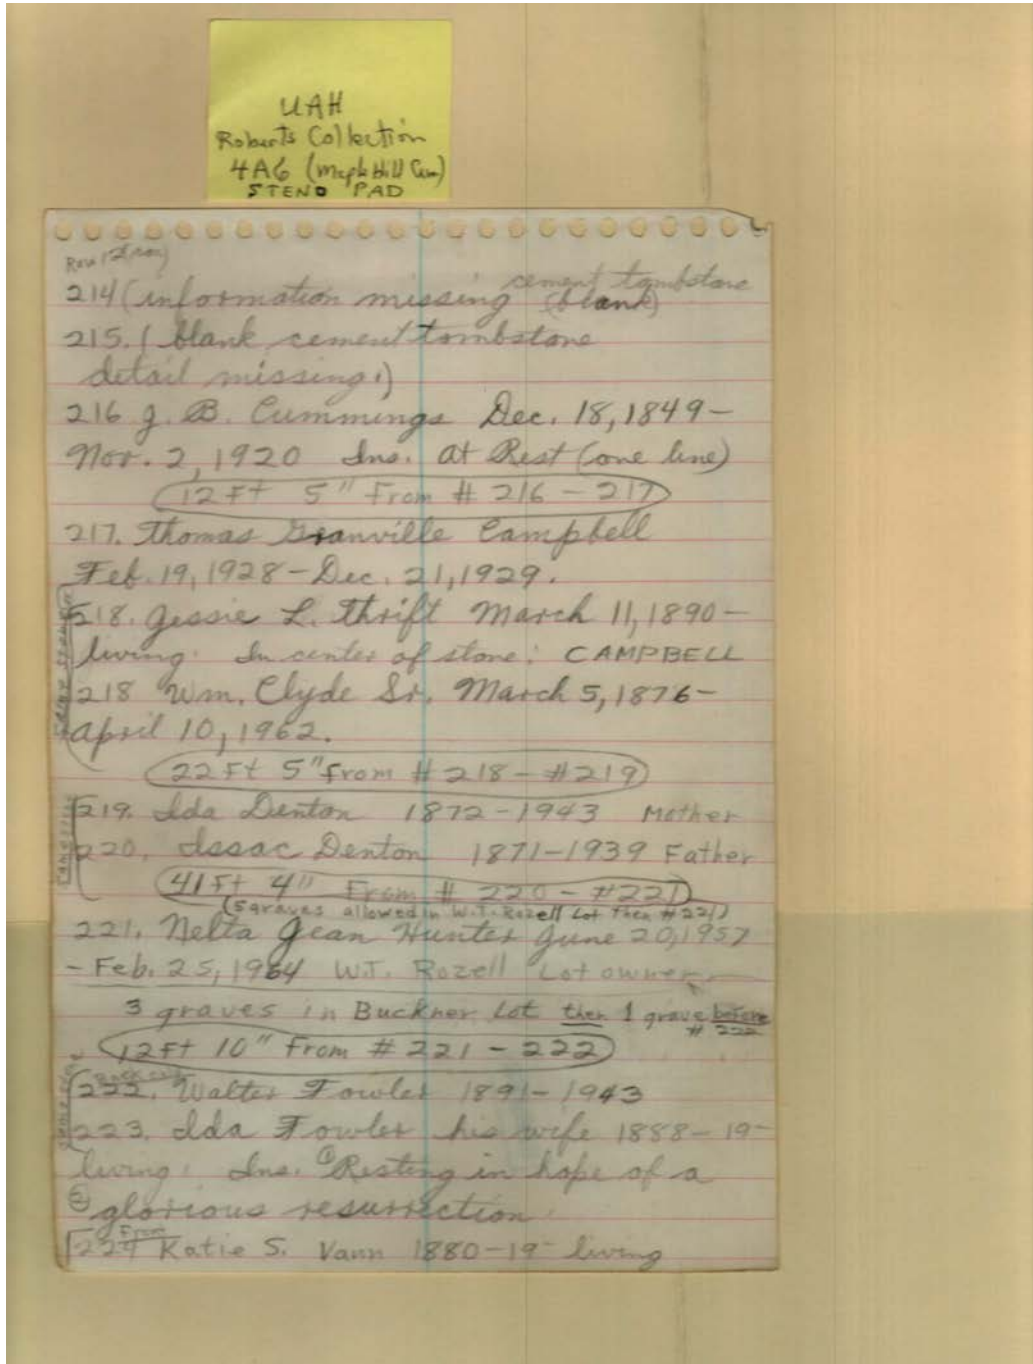 UAH
Roberts Collection
4A6 (Maple Hill Cem)
STENO PAD
Row 12
214 (information missing cement tombstone (blank)
215. (blank cement tombstone
detail missing.)
216 J. B. Cummings Dec. 18, 1849-
Nov. 2, 1920 Ins. At Rest (one line)
12 Ft 5" From # 216 - 217
217. Thomas Granville Campbell
Feb. 19, 1928 - Dec. 21, 1929.
218. Jessie L. Thrift March 11, 1890-
living. In center of stone: CAMPBELL
218 Wm. Clyde Sr. March 5, 1876-
April 10, 1962.
22 Ft 5" from # 218 - #219
219. Ida Denton 1872-1943 Mother
same stone
220. Issac Denton 1871-1939 Father
41 Ft 4" From # 220 - #221
(5 graves allowed in W.T. Rozell Lot then #221)
221. Nelta Jean Hunter June 20, 1957
- Feb. 25, 1964 W.T. Rozell Lot owner
3 graves in Buckner Lot then 1 grave before # 222
12 Ft 10" From # 221 - 222
222. Walter Fowler 1891-1943
same stone
223. Ida Fowler his wife 1888-19-
living. Ins. ① Resting in hope of a
② glorious resurrection.
224 From Katie S. Vann 1880-19- living